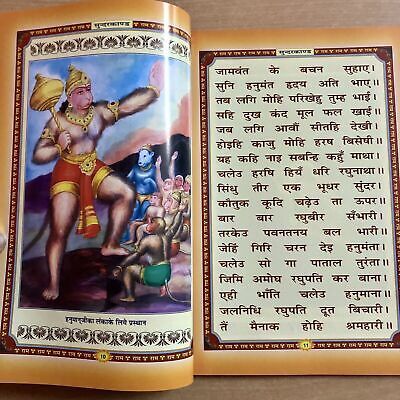 सुन्दरकाण्ड
हनुमान्‌जीका लंकाके लिये प्रस्थान
10
सुन्दरकाण्ड
जामवंत के बचन सुहाए।
सुनि हनुमंत हृदय अति भाए॥
तब लगि मोहि परिखेहु तुम्ह भाई।
सहि दुख कंद मूल फल खाई॥
जब लगि आवौं सीतहि देखी।
होइहि काजु मोहि हरष बिसेषी॥
यह कहि नाइ सबन्हि कहुँ माथा।
चलेउ हरषि हियँ धरि रघुनाथा॥
सिंधु तीर एक भूधर सुंदर।
कौतुक कूदि चढ़ेउ ता ऊपर॥
बार बार रघुबीर सँभारी।
तरकेउ पवनतनय बल भारी॥
जेहिं गिरि चरन देइ हनुमंता।
चलेउ सो गा पाताल तुरंता॥
जिमि अमोघ रघुपति कर बाना।
एही भाँति चलेउ हनुमाना॥
जलनिधि रघुपति दूत बिचारी।
तैं मैनाक होहि श्रमहारी॥
11